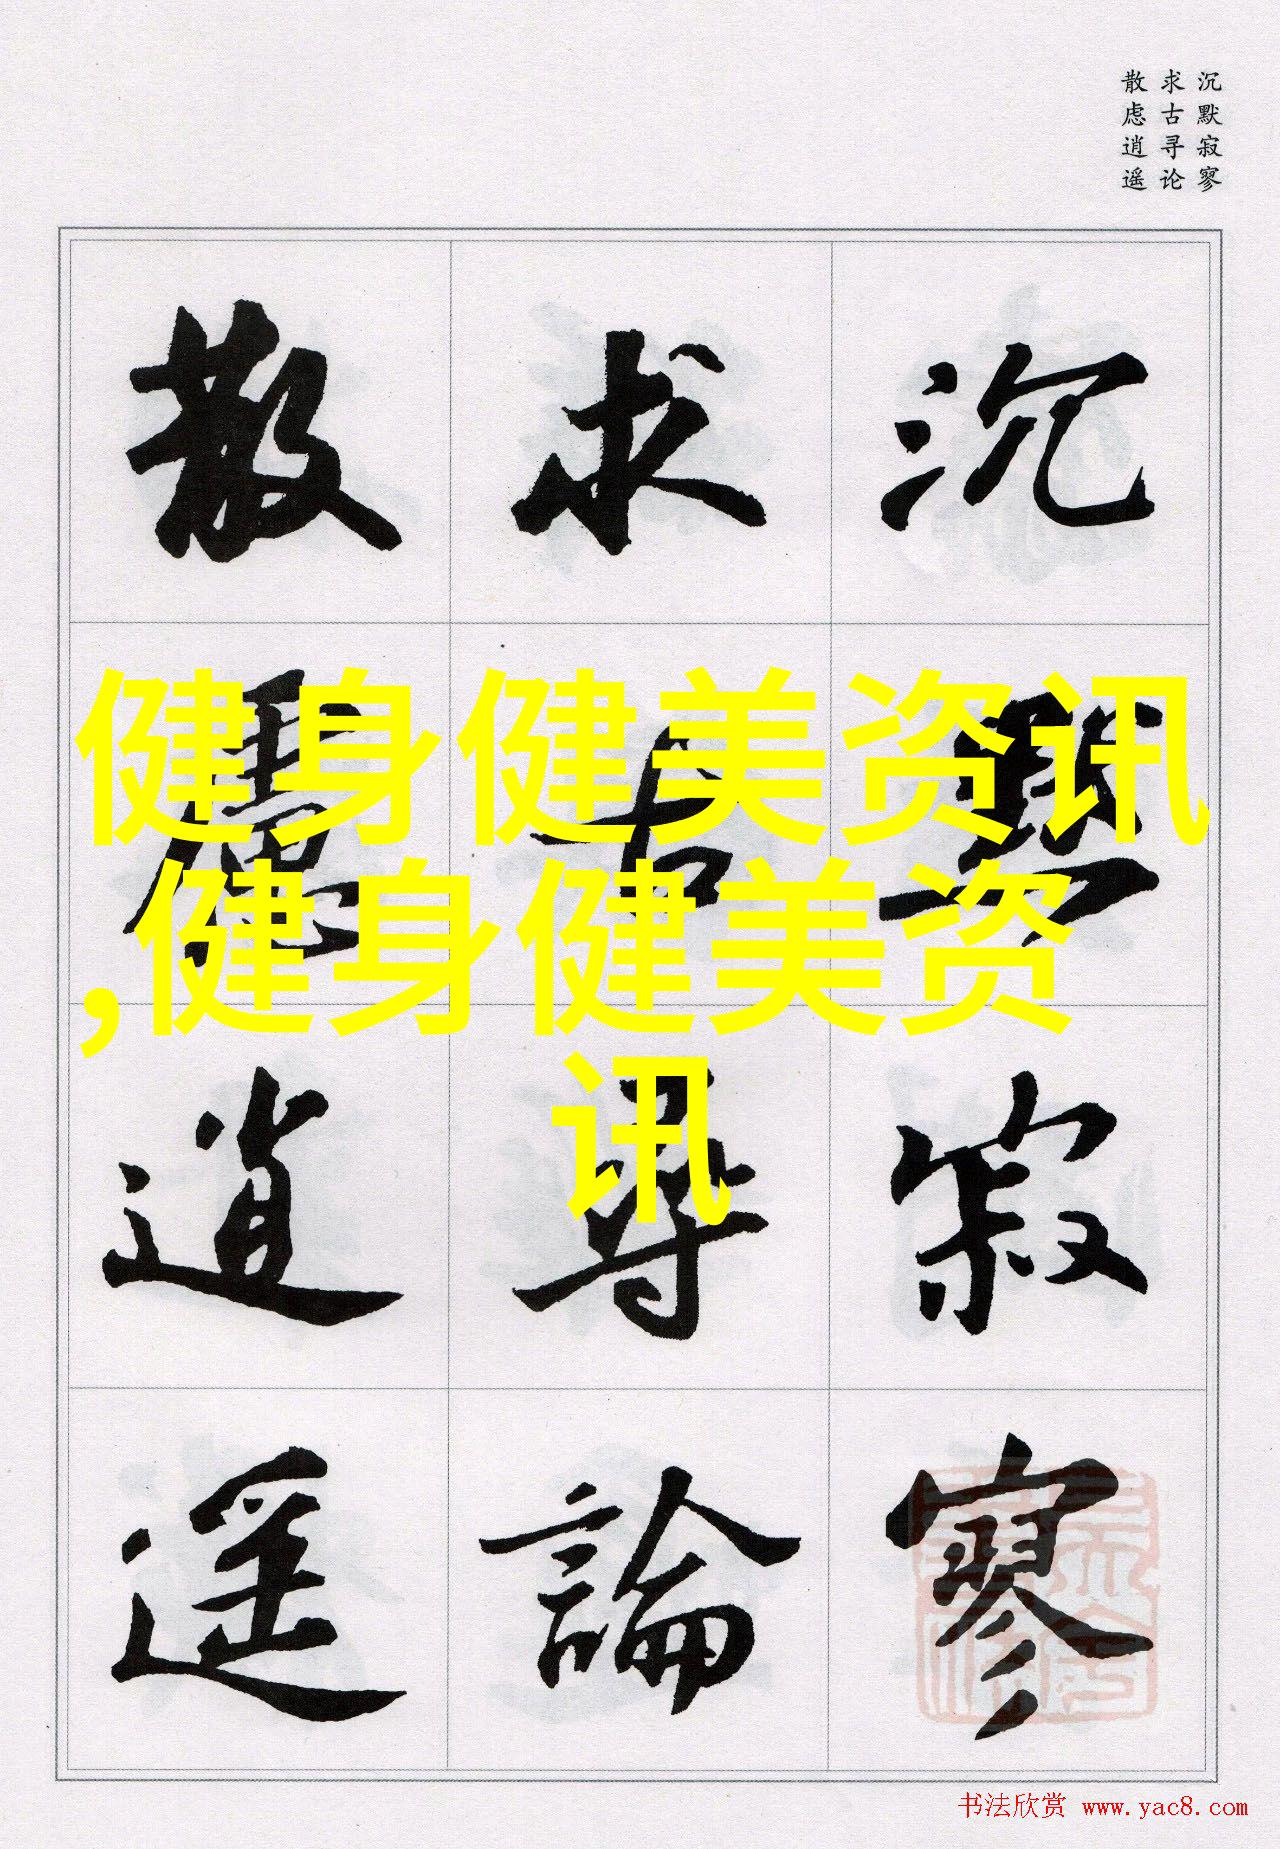 沉默寂寥
求古寻论
散虑逍遥
沉默寂寥
求古尋論
散慮逍遥
健身健美资讯
,健身健美资
讯
书法欣赏 www.yac8.com